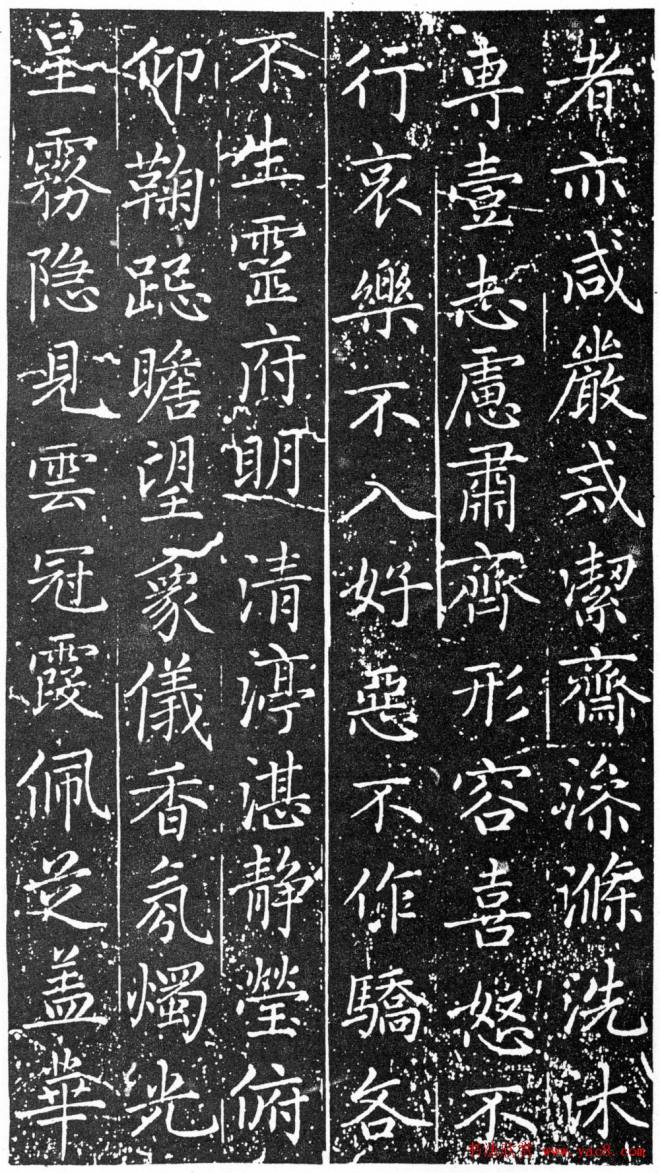 者亦咸嚴戒潔齋澡滌洗沐
専壹志慮肅齊形容喜怒不
行哀樂不入好惡不作驕吝
不生靈府明清渟湛静瑩俯
仰鞠跽瞻望象儀香氛燭光
星霧隐見雲冠霞佩芝盖華
书法欣赏 www.yac8.com